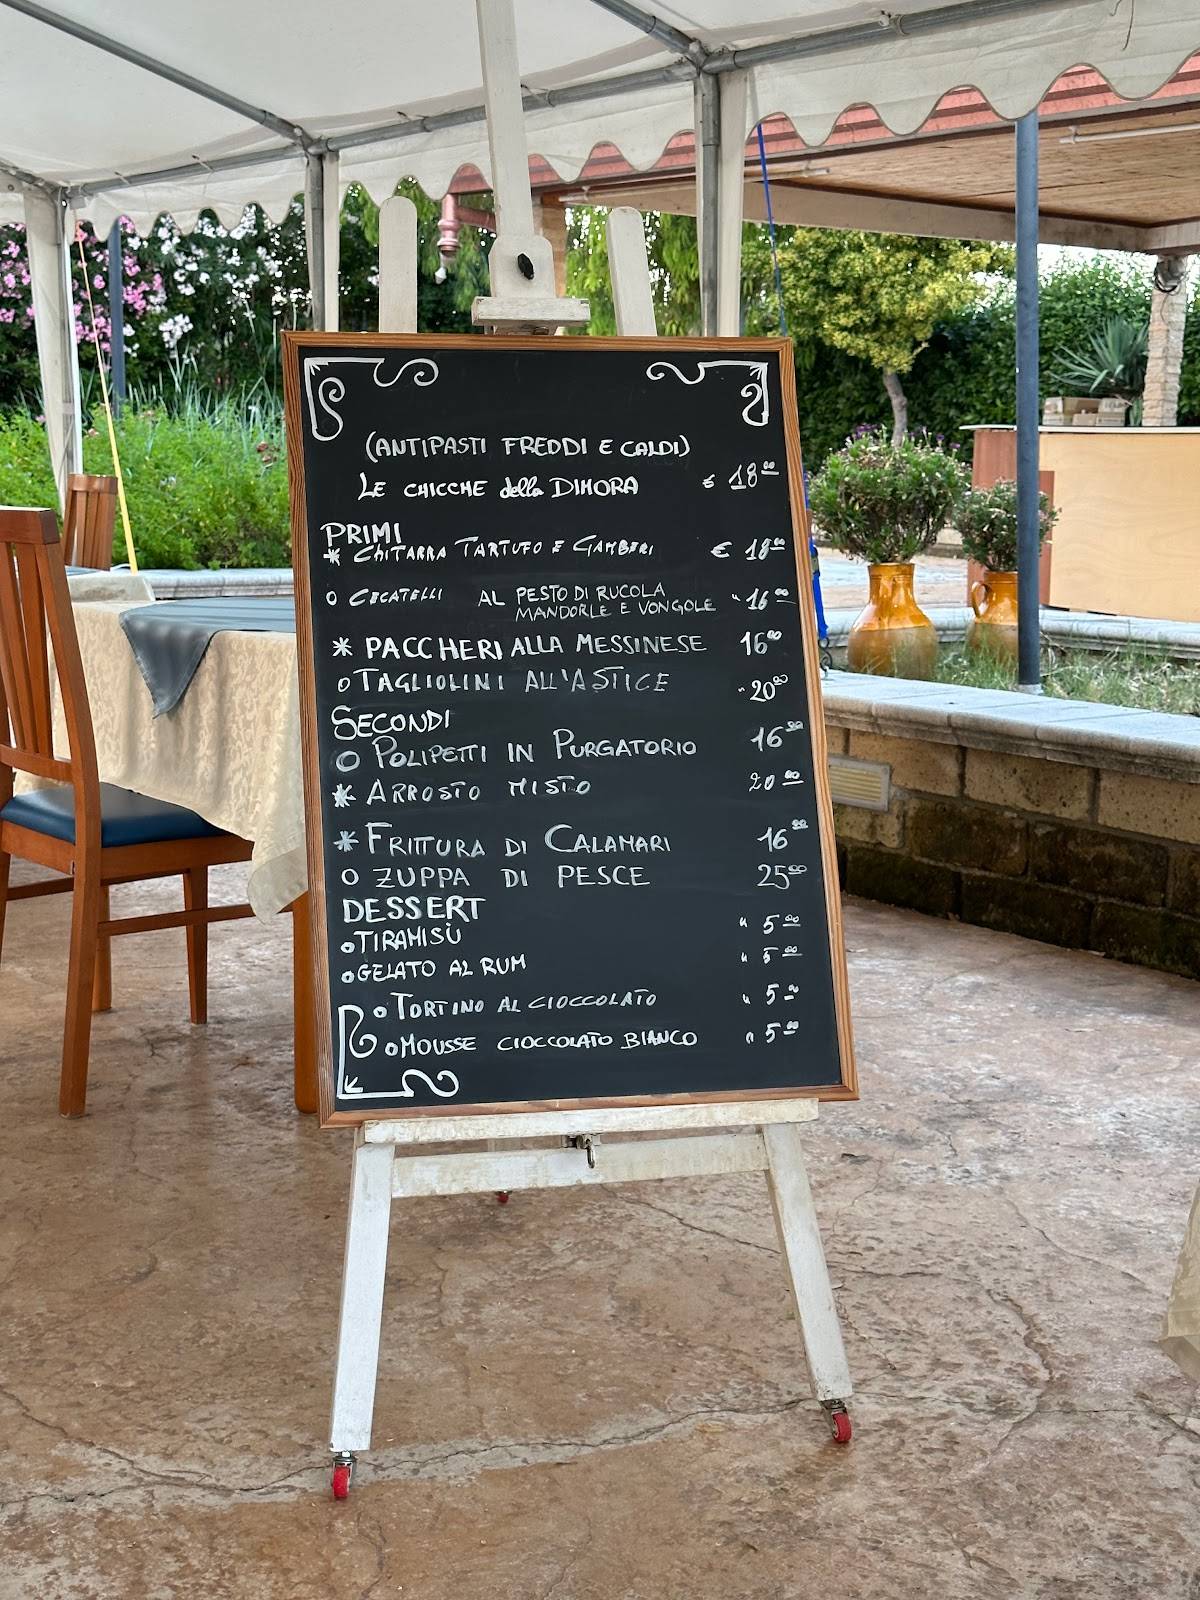 (ANTIPASTI FREDDI E CALDI)
LE CHICCHE della DIMORA € 18,00
PRIMI
* CHITARRA TARTUFO E GAMBERI € 18,00
o CECATELLI AL PESTO DI RUCOLA
MANDORLE E VONGOLE " 16,00
* PACCHERI ALLA MESSINESE 16,00
o TAGLIOLINI ALL'ASTICE " 20,00
SECONDI
o POLIPETTI IN PURGATORIO 16,00
* ARROSTO MISTO 20,00
* FRITTURA DI CALAMARI 16,00
o ZUPPA DI PESCE 25,00
DESSERT
o TIRAMISÙ " 5,00
o GELATO AL RUM " 5,00
o TORTINO AL CIOCCOLATO " 5,00
o MOUSSE CIOCCOLATO BIANCO " 5,00